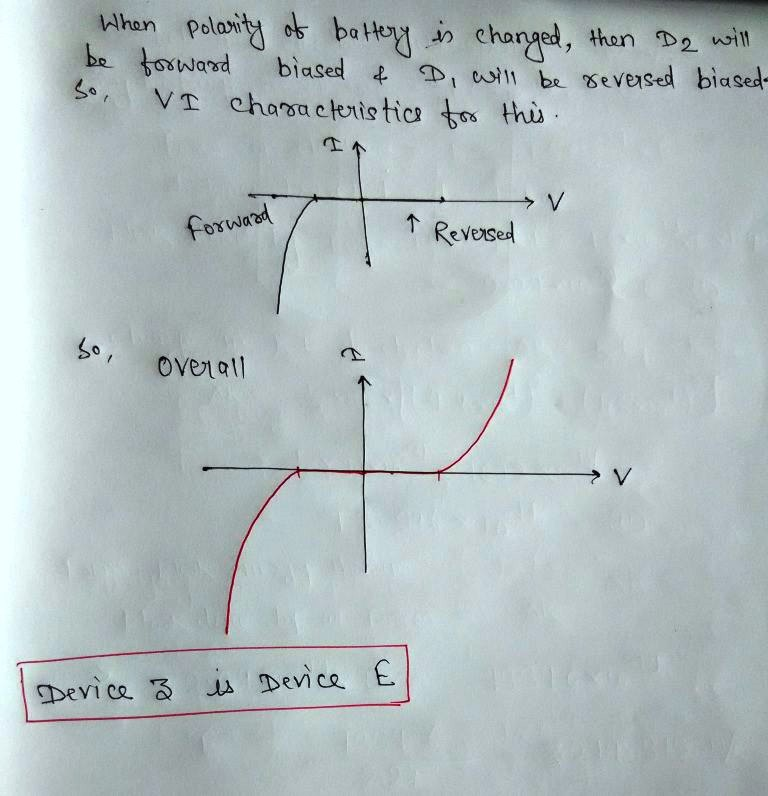 When polarity of battery is changed, then D2 will
be forward biased & D1 will be reversed biased.
So, VI characteristics for this.
I
V
forward
↑ Reversed
So, overall
I
V
Device 3 is Device E